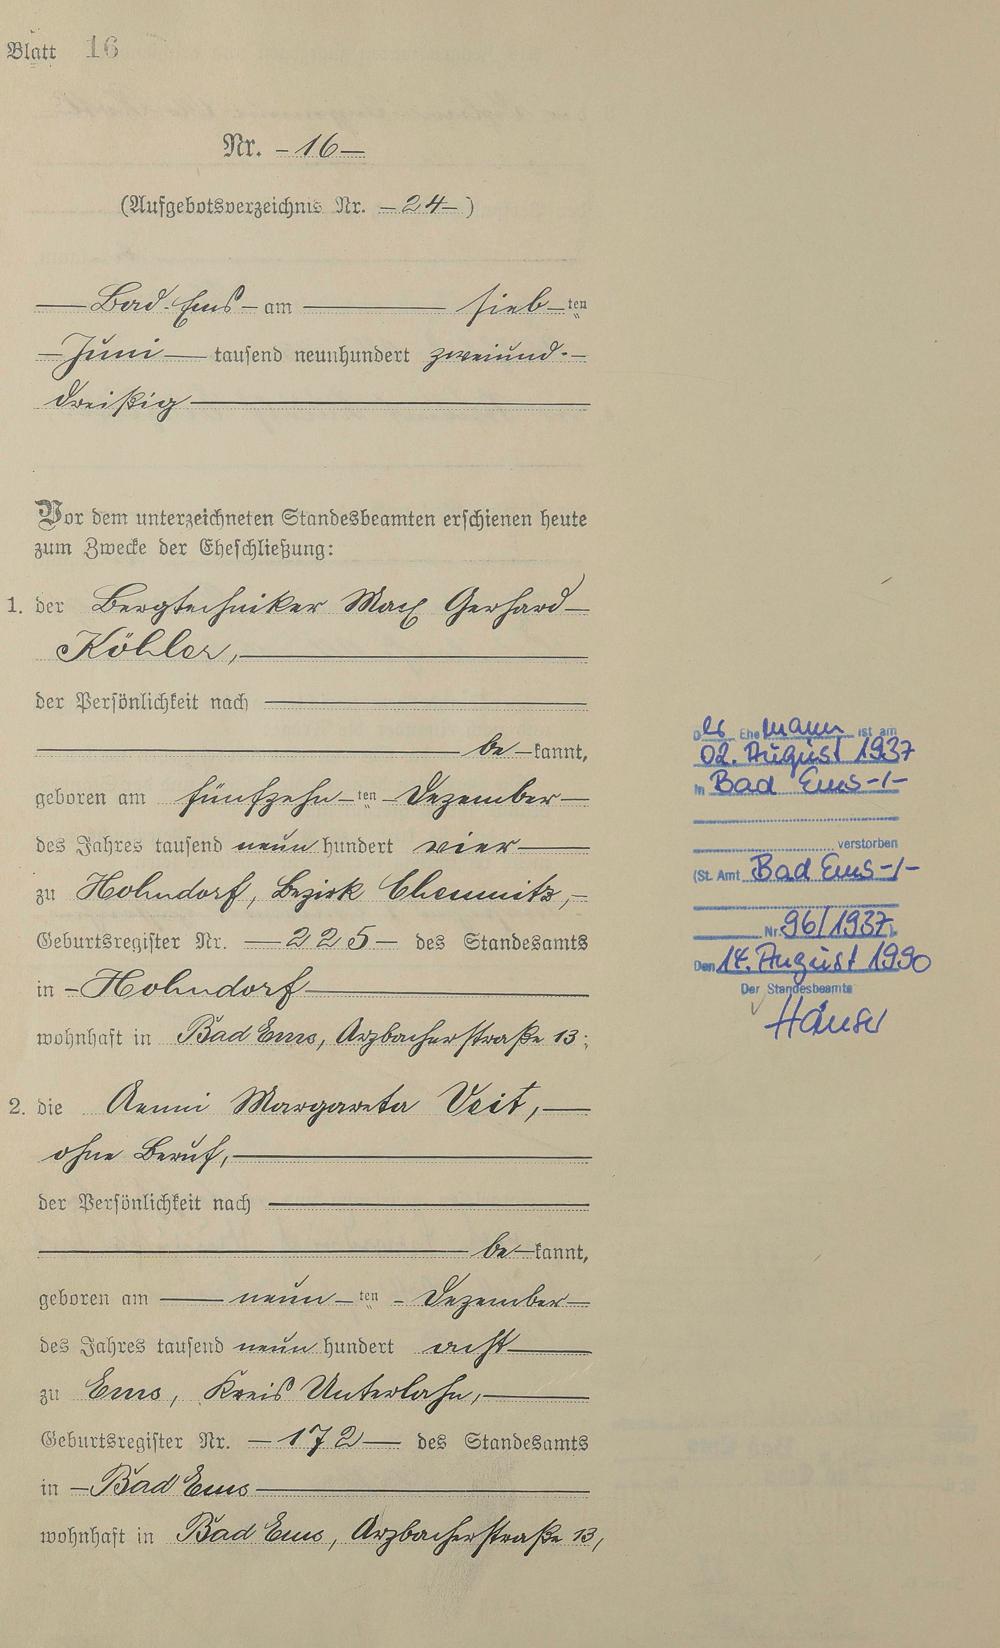 Blatt 16
Nr. - 16 -
(Aufgebotsverzeichnis Nr. - 24 - )
Bad-Ems - am sieb - ten
- Juni - tausend neunhundert zweiund-
dreißig
Vor dem unterzeichneten Standesbeamten erschienen heute
zum Zwecke der Eheschließung:
1. der Bergtechniker Max Gerhard
Köhler,
der Persönlichkeit nach
be - kannt,
geboren am fünfzehn - ten - Dezember
des Jahres tausend neun hundert vier
zu Hohndorf, Bezirk Chemnitz,
Geburtsregister Nr. - 225 - des Standesamts
in - Hohndorf
wohnhaft in Bad Ems, Arzbacherstraße 13;
2. die Aenni Margareta Veit,
ohne Beruf,
der Persönlichkeit nach
be - kannt,
geboren am neun - ten - Dezember
des Jahres tausend neun hundert acht
zu Ems, Kreis Unterlahn,
Geburtsregister Nr. - 172 - des Standesamts
in - Bad Ems
wohnhaft in Bad Ems, Arzbacherstraße 13,
Der Ehemann ist am
02. August 1937
in Bad Ems -/-
verstorben
(St. Amt Bad Ems -/-
Nr. 96/1937).
Den 14. August 1990
Der Standesbeamte
Häuser